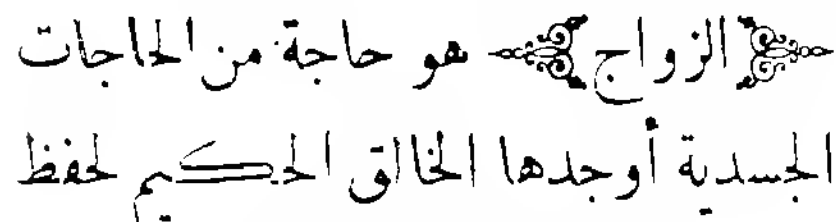 ﴿الزواج﴾ هو حاجة من الحاجات
الجسدية أوجدها الخالق الحكيم لحفظ